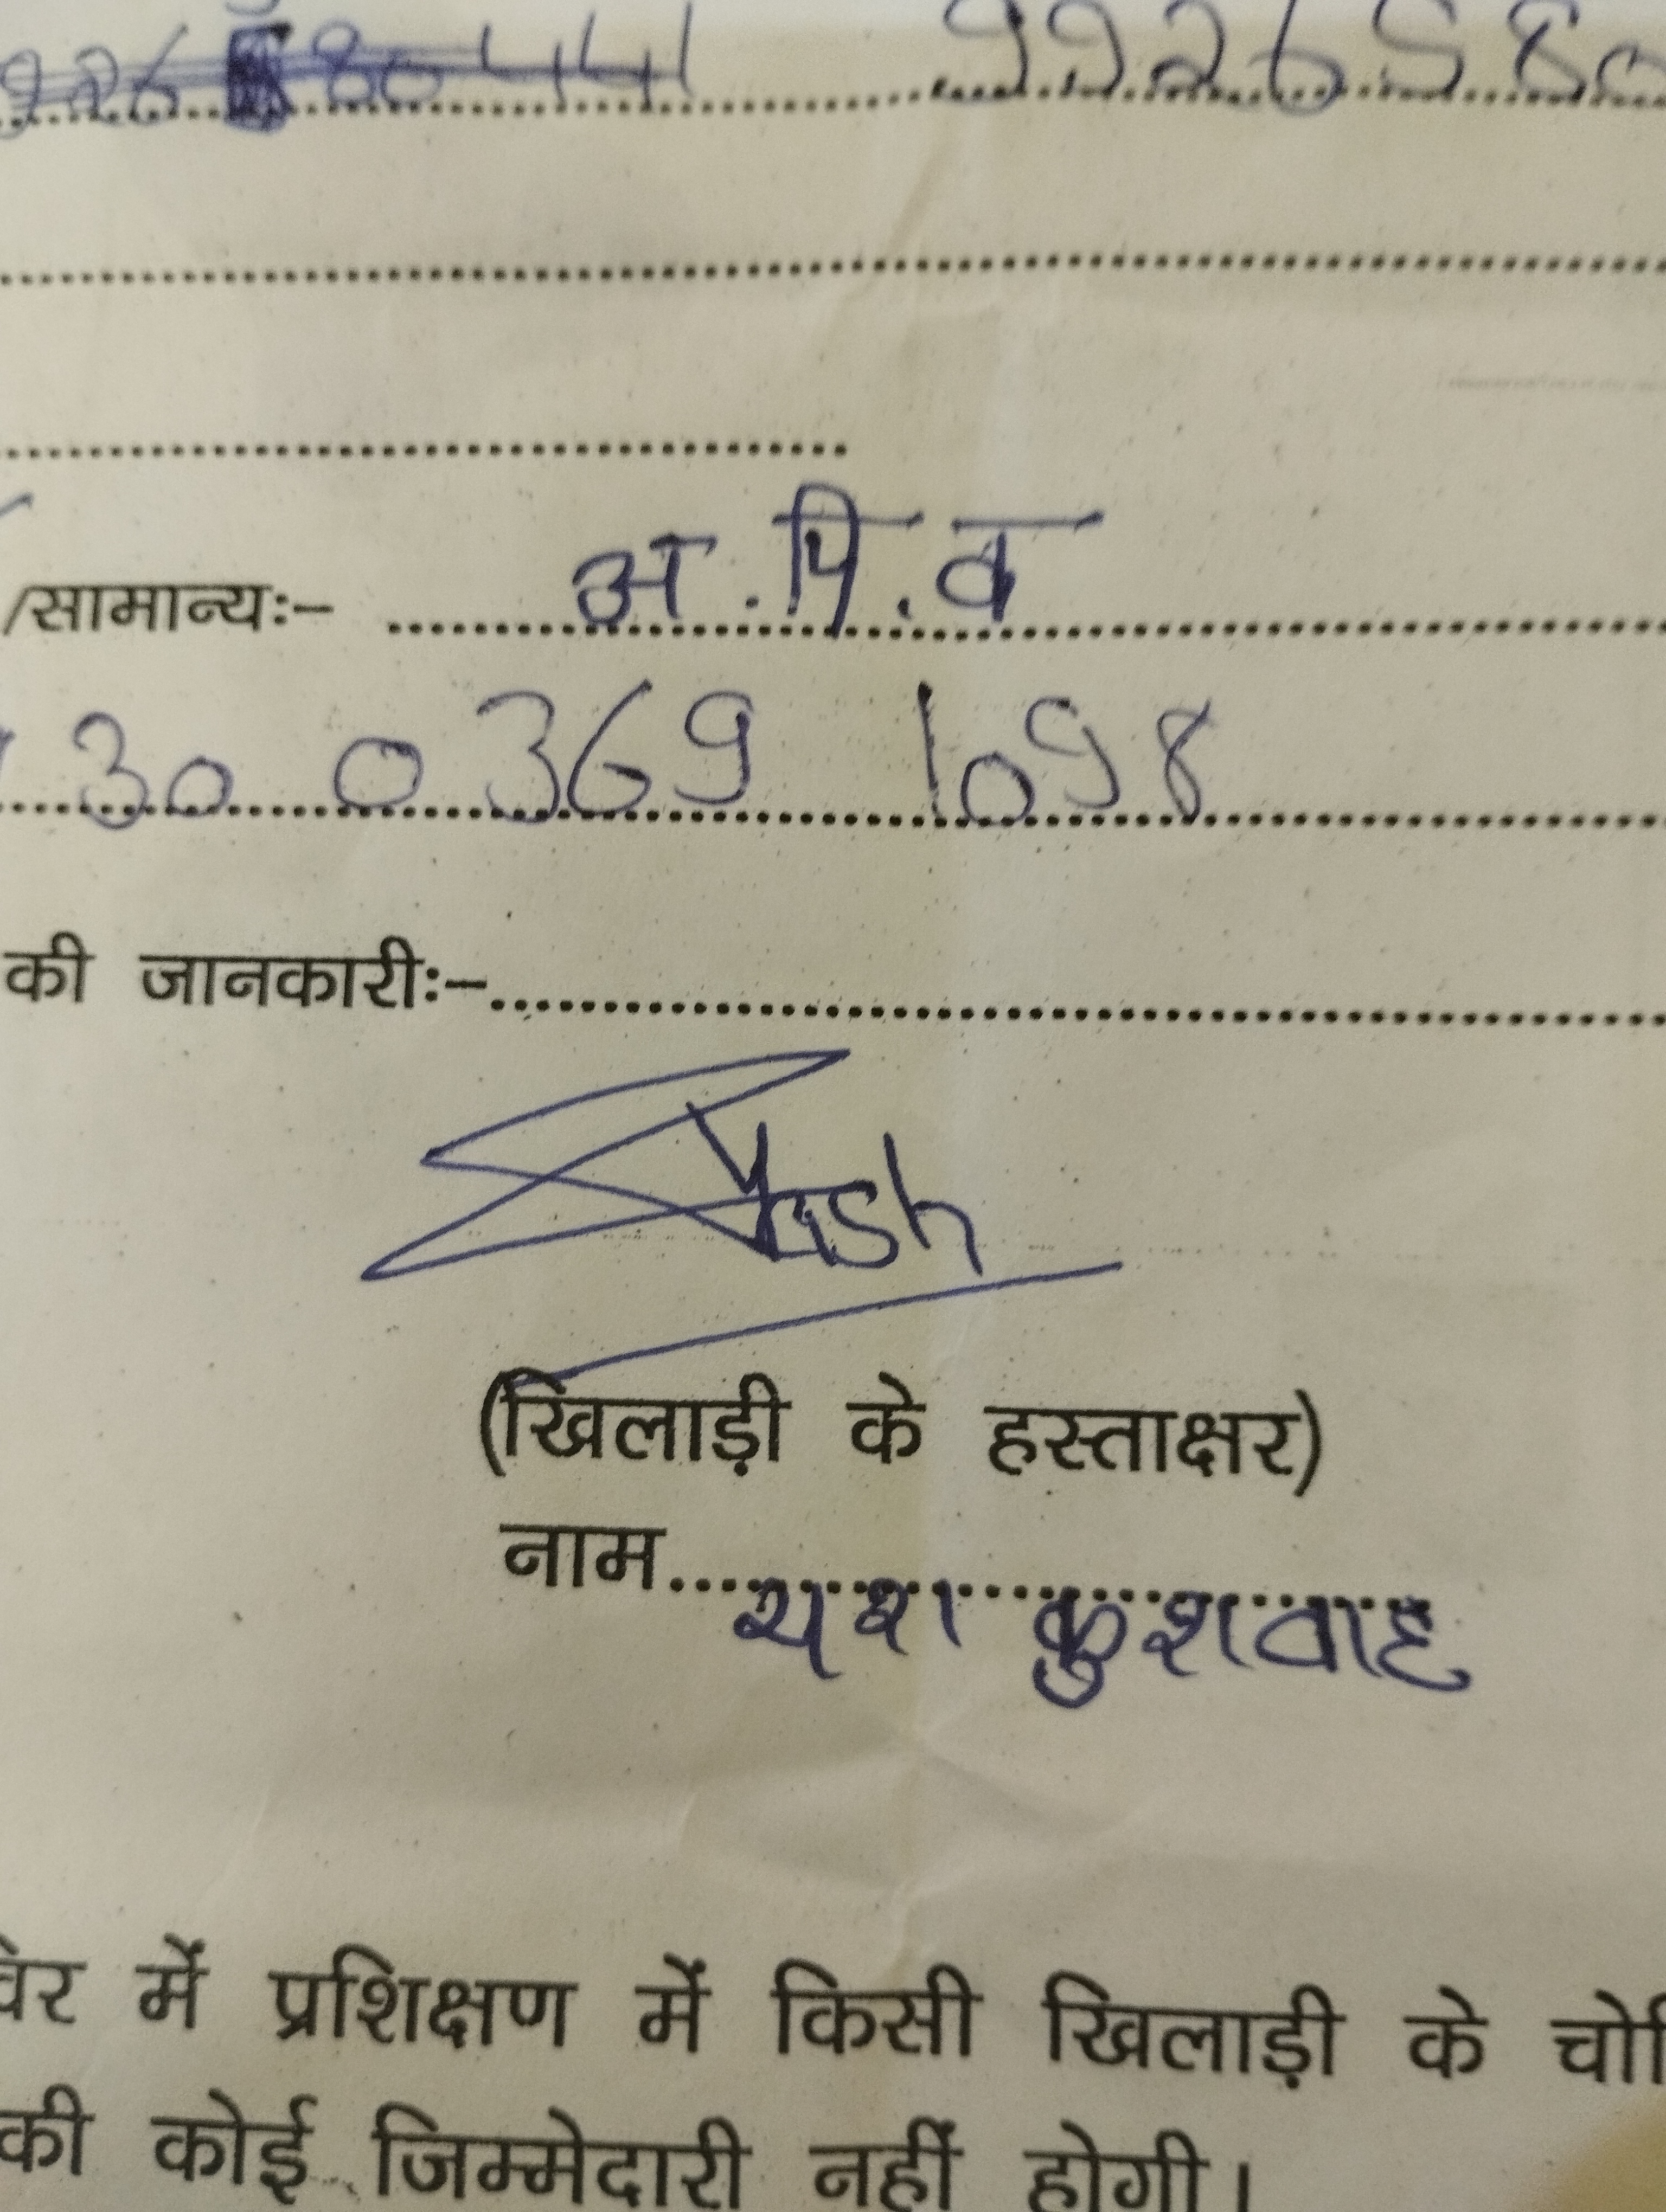 226 80441 9926580
/सामान्यः– अ.पि.व
30 0369 1098
की जानकारीः–
Yash
(खिलाड़ी के हस्ताक्षर)
नाम यश कुशवाह
में प्रशिक्षण में किसी खिलाड़ी के
की कोई जिम्मेदारी नहीं होगी।